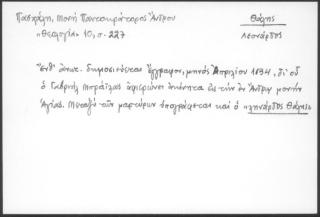 Πασχάλη, Μονή Παντοκράτορος Ἄνδρου
Θάλης
«Θεολογία» 10, σ. 227
Λεονάρδος
Ἔνθ' ἀνωτ. δημοσιεύεται ἔγγραφον, μηνὸς Ἀπριλίου 1694, δι' οὗ
ὁ Γαβριὴλ ἀφιερώνει ἀκίνητα εἰς τὴν ἐν Ἄνδρῳ μονὴν
Ἁγίας. Μεταξὺ τῶν μαρτύρων ὑπογράφεται καὶ ὁ «ληνάρδος Θάλης»